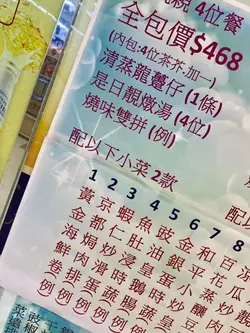 4位餐
全包價$468
(內包:4位茶芥.加一)
清蒸龍躉仔 (1條)
是日靚燉湯 (4位)
燒味雙拼 (例)
配以下小菜 2款
1 2 3 4 5 6 7 8
黃金海鮮卷(例)
京都焗肉排(例)
蝦仁炒滑蛋(例)
魚肚浸時蔬(例)
豉油皇鵝腸(例)
金銀蛋時蔬(例)
和平小炒皇(例)
百花蒸釀